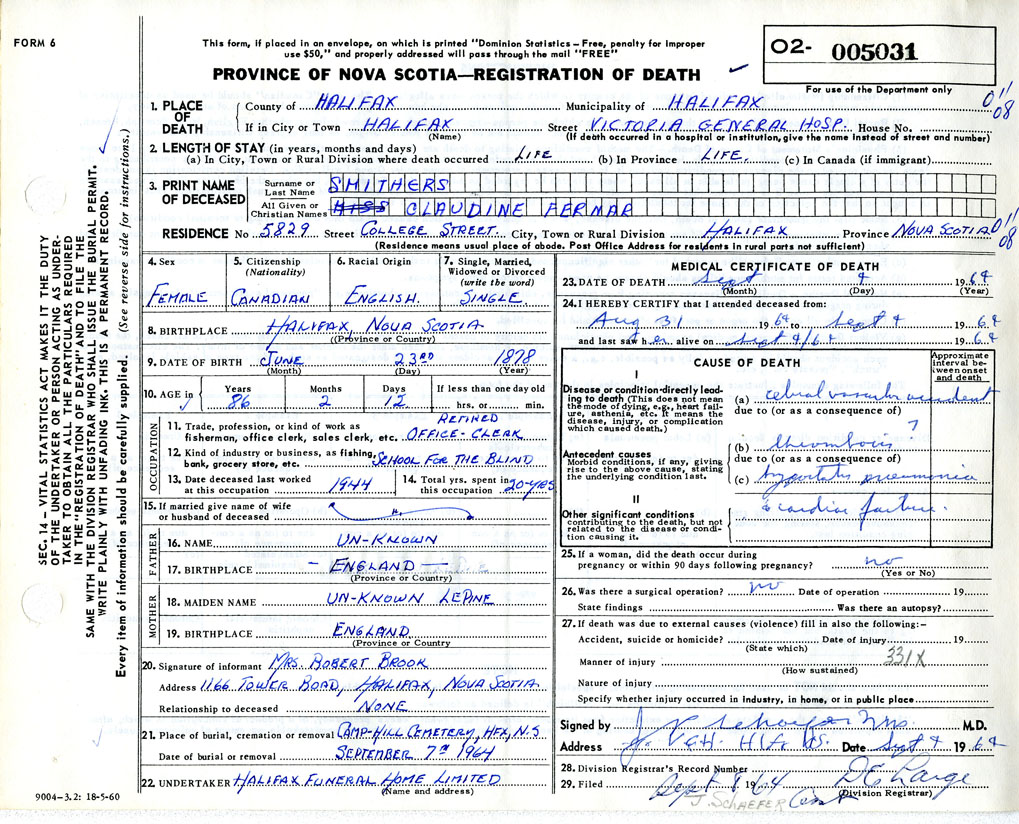 FORM 6
This form, if placed in an envelope, on which is printed "Dominion Statistics – Free, penalty for improper
use $50," and properly addressed will pass through the mail "FREE"
PROVINCE OF NOVA SCOTIA—REGISTRATION OF DEATH
O2- 005031
For use of the Department only
1. PLACE OF DEATH
County of HALIFAX Municipality of HALIFAX
If in City or Town HALIFAX Street VICTORIA GENERAL HOSP. House No.
(Name) (If death occurred in a hospital or institution, give the name instead of street and number)
011
08
2. LENGTH OF STAY (in years, months and days)
(a) In City, Town or Rural Division where death occurred LIFE (b) In Province LIFE. (c) In Canada (if immigrant)
3. PRINT NAME OF DECEASED
Surname or Last Name SMITHERS
All Given or Christian Names MISS CLAUDINE FERMAR
RESIDENCE No 5829 Street COLLEGE STREET City, Town or Rural Division HALIFAX Province NOVA SCOTIA
011
08
(Residence means usual place of abode. Post Office Address for residents in rural parts not sufficient)
4. Sex
FEMALE
5. Citizenship
(Nationality)
CANADIAN
6. Racial Origin
ENGLISH.
7. Single, Married,
Widowed or Divorced
(write the word)
SINGLE
8. BIRTHPLACE HALIFAX, NOVA SCOTIA
(Province or Country)
9. DATE OF BIRTH JUNE 23RD 1878
(Month) (Day) (Year)
10. AGE in
Years Months Days If less than one day old
86 2 12 hrs. or min.
OCCUPATION
11. Trade, profession, or kind of work as
fisherman, office clerk, sales clerk, etc. RETIRED OFFICE-CLERK
12. Kind of industry or business, as fishing,
bank, grocery store, etc. SCHOOL FOR THE BLIND
13. Date deceased last worked
at this occupation 1944
14. Total yrs. spent in
this occupation 20-YRS
15. If married give name of wife
or husband of deceased
FATHER
16. NAME UN-KNOWN
17. BIRTHPLACE – ENGLAND —
(Province or Country)
MOTHER
18. MAIDEN NAME UN-KNOWN LEPINE
19. BIRTHPLACE ENGLAND
(Province or Country
20. Signature of informant MRS. ROBERT BROOK
Address 1166 TOWER ROAD, HALIFAX, NOVA SCOTIA
Relationship to deceased NONE
21. Place of burial, cremation or removal CAMP-HILL CEMETERY, HFX, N.S
Date of burial or removal SEPTEMBER 7TH 1964
22. UNDERTAKER HALIFAX FUNERAL HOME LIMITED
(Name and address)
MEDICAL CERTIFICATE OF DEATH
23. DATE OF DEATH Sept 4 1964
(Month) (Day) (Year)
24. I HEREBY CERTIFY that I attended deceased from:
Aug 31 1964 to Sept 4 1964
and last saw her alive on Sept 4/64 1964
CAUSE OF DEATH
Approximate
interval be-
tween onset
and death
I
Disease or condition directly lead-
ing to death (This does not mean
the mode of dying, e.g., heart fail-
ure, asthenia, etc. It means the
disease, injury, or complication
which caused death.)
(a) cebral vascular accident
due to (or as a consequence of)
?
(b) thrombosis
due to (or as a consequence of)
(c) hypostatic pneumonia
Antecedent causes
Morbid conditions, if any, giving
rise to the above cause, stating
the underlying condition last.
II
Other significant conditions
contributing to the death, but not
related to the disease or condi-
tion causing it.
cardiac failure.
25. If a woman, did the death occur during
pregnancy or within 90 days following pregnancy? no
(Yes or No)
26. Was there a surgical operation? no Date of operation 19
State findings Was there an autopsy?
27. If death was due to external causes (violence) fill in also the following:–
Accident, suicide or homicide? Date of injury 19
(State which)
331X
Manner of injury
(How sustained)
Nature of injury
Specify whether injury occurred in industry, in home, or in public place
Signed by M.D.
Address V.G.H. Hfx NS. Date Sept 4 1964
28. Division Registrar's Record Number
29. Filed Sept 8/64
(Division Registrar)
J. SCHAEFER
9004–3.2: 18-5-60
SEC. 14 – VITAL STATISTICS ACT MAKES IT THE DUTY
OF THE UNDERTAKER OR PERSON ACTING AS UNDER-
TAKER TO OBTAIN ALL THE PARTICULARS REQUIRED
IN THE "REGISTRATION OF DEATH" AND TO FILE THE
SAME WITH THE DIVISION REGISTRAR WHO SHALL ISSUE THE BURIAL PERMIT.
WRITE PLAINLY WITH UNFADING INK. THIS IS A PERMANENT RECORD.
Every item of information should be carefully supplied. (See reverse side for instructions.)